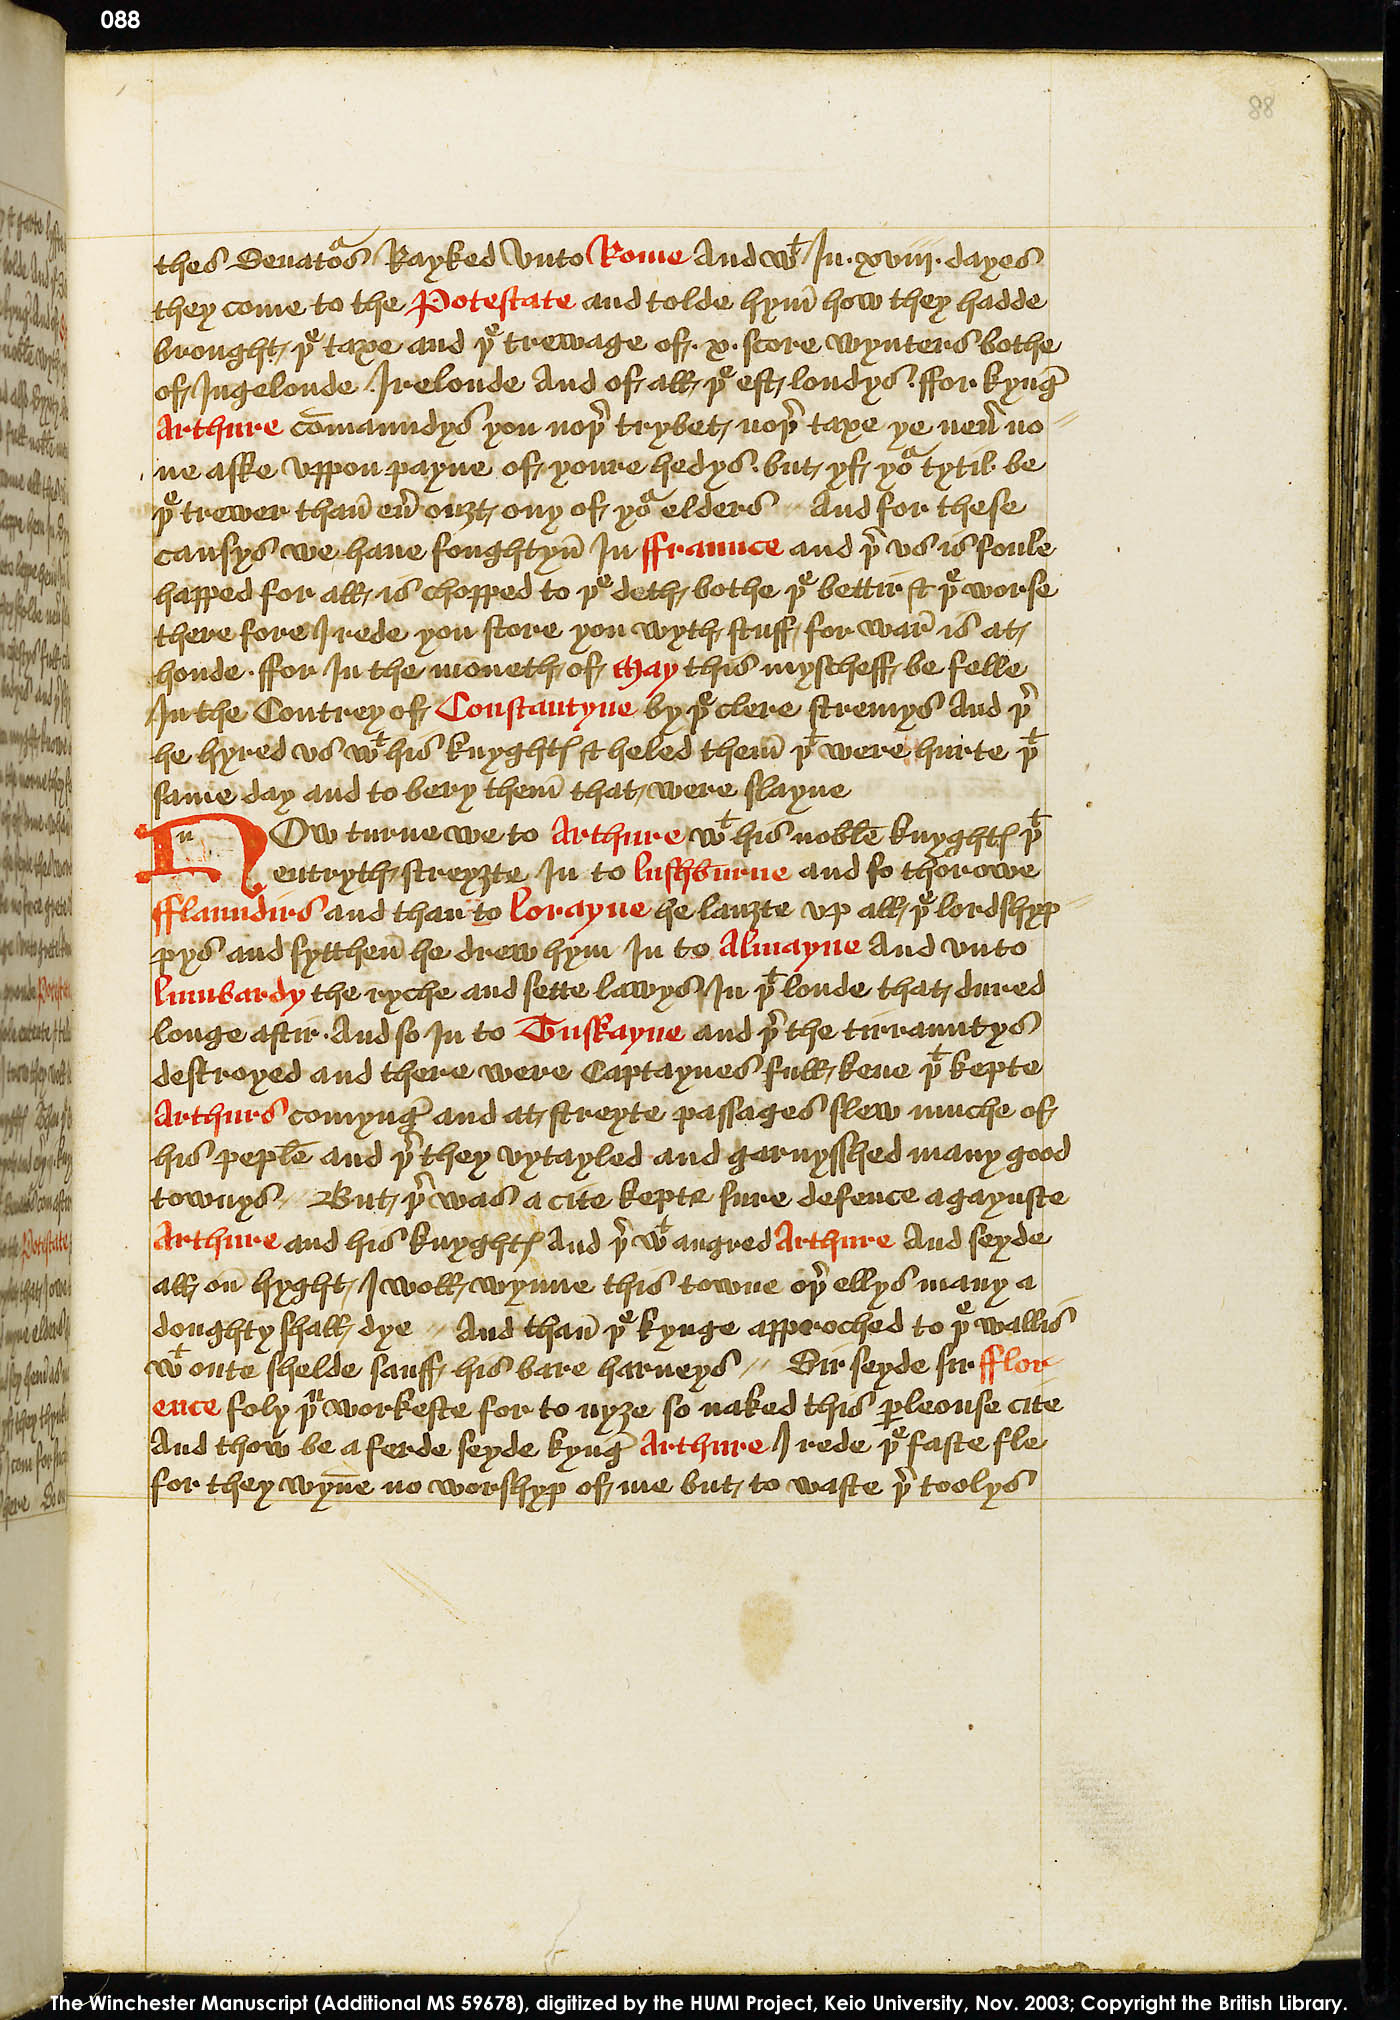 088
88
thes Senatoͬs Rayked vnto Rome And wͭ In · xviii · dayes
they come to the Potestate and tolde hym̄ how they hadde
brought þͤ taxe and þͤ trewage of · x · score wynters bothe
of Ingelonde Irelonde And of all þͤ est londys · ffor kyng
Arthure com̄aundys you noþ̾ trybet noþ̾ taxe ye neu̾ no
ne aske vppon payne of youre hedys · but yf yoͬ tytil be
þͤ trewer than̄ eu̾ ouȝt ony of yoͬ elders〃 And for these
causys we haue foughtyn̄ In ffraunce and þ̾ vs is foule
happed for all is chopped to þͤ deth bothe þͤ bettir & þͤ worse
there fore I rede you store you wyth stuff for war̄ is at
honde · ffor In the moneth of May this myscheff be felle
In the Contrey of Constantyne by þͤ clere stremys And þ̾
he hyred vs wͭ his knyghtꝭ & heled them̄ þͭ were hurte þͭ
same day and to bery them̄ that were slayne
n
NOw turne we to Arthure wͭ his noble knyghtꝭ þͭ
entryth streyȝte In to lushburne and so thorowe
fflaundirs and than to lorayne he lauȝte vp all þͤ lordshyp
pys and sytthen̄ he drew hym In to Almayne And vnto
lumbardy the ryche and sette lawys In þͭ londe that dured
longe aftir · And so In to Tuskayne and þ̾ the tirrauntys
destroyed and there were Captaynes full kene þͭ kepte
Arthurs comyng and at streyte passages slew muche of
his peple and þ̾ they vytayled and garnysshed many good
townys〃 But þ̾ was a cite kepte sure defence agaynste
Arthure and his knyghtꝭ And þ̾ wͭ angred Arthure And seyde
all on̄ hyght I woll wynne this towne oþ̾ ellys many a
doughty shall dye〃 And than̄ þͤ kynge approched to þͤ wallis
wͭ oute shelde sauff his bare harneys〃 Sir seyde sir fflor
ence foly þͧ workeste for to nyȝe so naked this ꝑleouse cite
And thow be a ferde seyde kyng Arthure I rede þͤ faste fle
for they wyn̄e no worshyp of me but to waste þ̾ toolys
The Winchester Manuscript (Additional MS 59678), digitized by the HUMI Project, Keio University, Nov. 2003; Copyright the British Library.